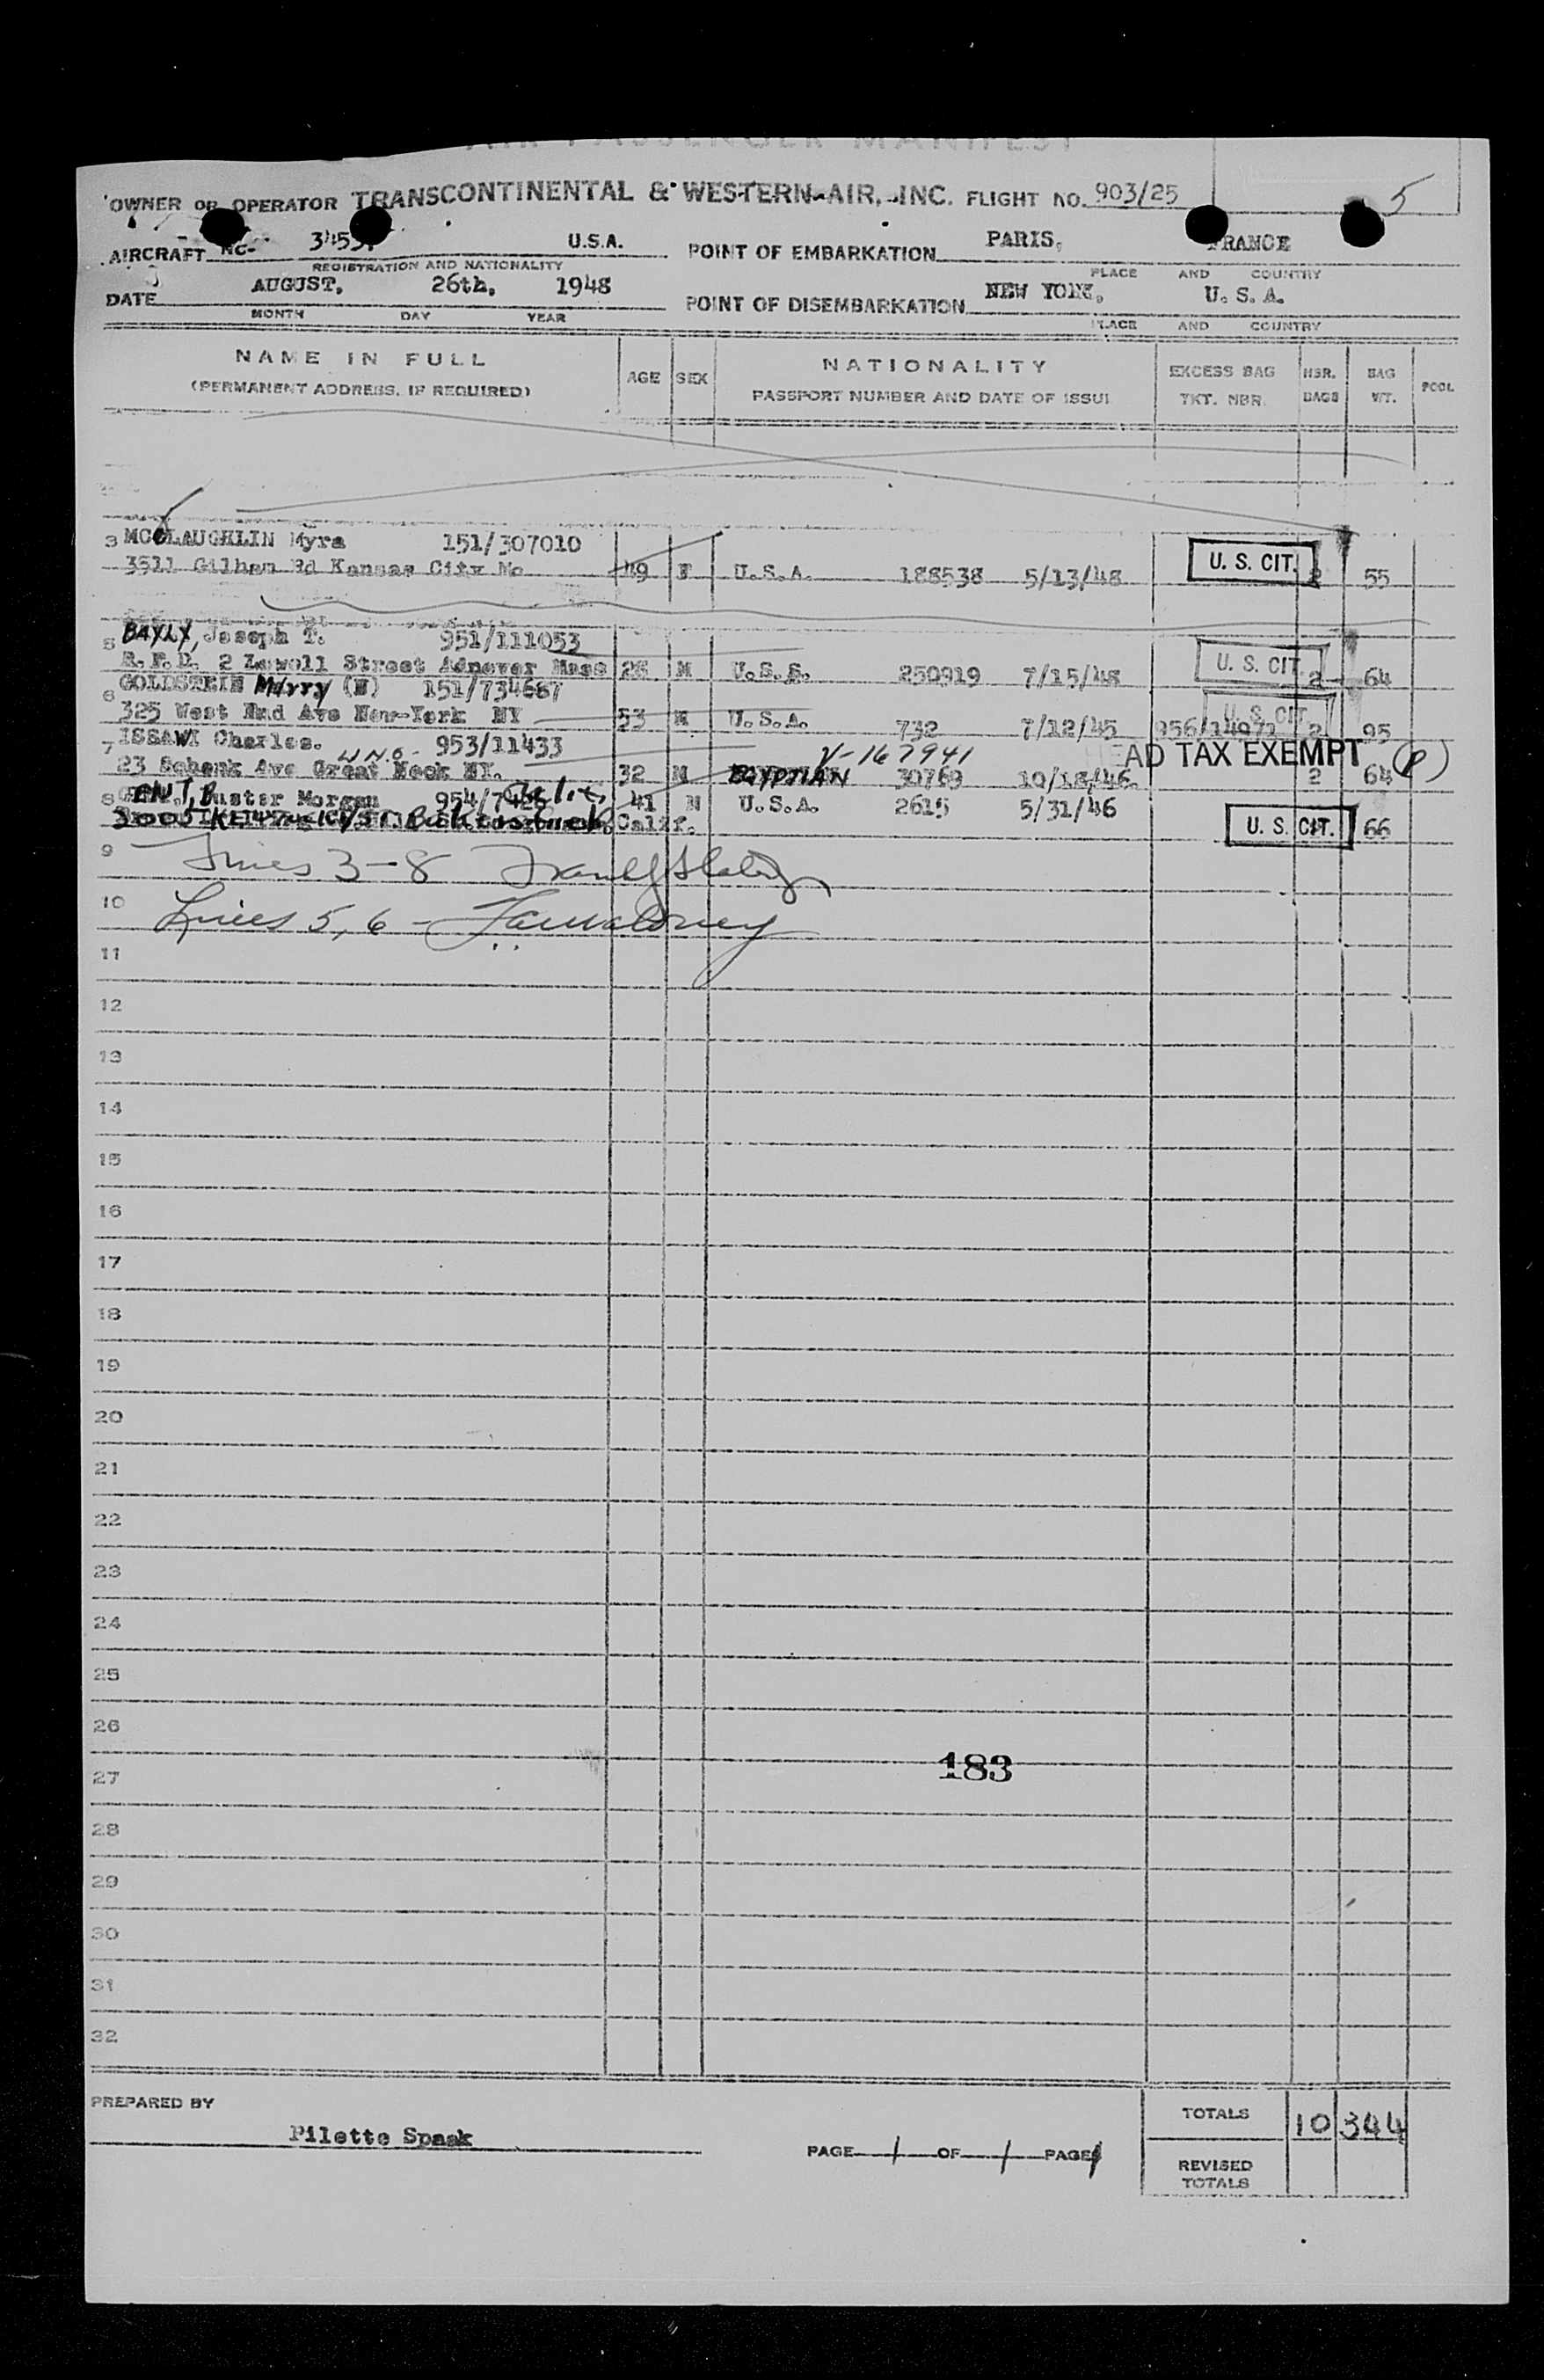 AIR PASSENGER MANIFEST
OWNER OR OPERATOR TRANSCONTINENTAL & WESTERN AIR, INC. FLIGHT NO. 903/25
5
AIRCRAFT NC- U.S.A. POINT OF EMBARKATION PARIS, FRANCE
REGISTRATION AND NATIONALITY PLACE AND COUNTRY
DATE AUGUST, 26th, 1948 POINT OF DISEMBARKATION NEW YORK, U. S. A.
MONTH DAY YEAR PLACE AND COUNTRY
NAME IN FULL AGE SEX NATIONALITY EXCESS BAG NBR. BAG POOL
(PERMANENT ADDRESS, IF REQUIRED) PASSPORT NUMBER AND DATE OF ISSUE TKT. NBR. BAGS WT.
3 MCCLAUGHLIN Myra 151/307010
Kansas City Mo 49 F U.S.A. 188538 5/13/48 U. S. CIT. 2 55
5 BAYLY, Joseph T. 951/111053
R.F.D. 2 Street Mass 28 M 250919 7/15/48 U. S. CIT. 2 64
6 GOLDSTEIN (M)
325 West End Ave New-York NY 53 M U.S.A. 732 7/12/45 956/14971 U. S. CIT. 2 95
7 ISSAWI Charles. U N O - 953/11433 V-167941 HEAD TAX EXEMPT (P)
23 Schenk Ave Great Neck NY. 32 M EGYPTIAN 30769 10/18/46 2 64
8 GENT, Buster Morgan Calif. 41 M U.S.A. 2615 5/31/46
Calif. U. S. CIT. 66
9 Lines 3-8
10 Lines 5, 6 -
11
12
13
14
15
16
17
18
19
20
21
22
23
24
25
26
27 183
28
29
30
31
32
PREPARED BY TOTALS 10 344
Pilette Spaak PAGE 1 OF 1 PAGES
REVISED
TOTALS